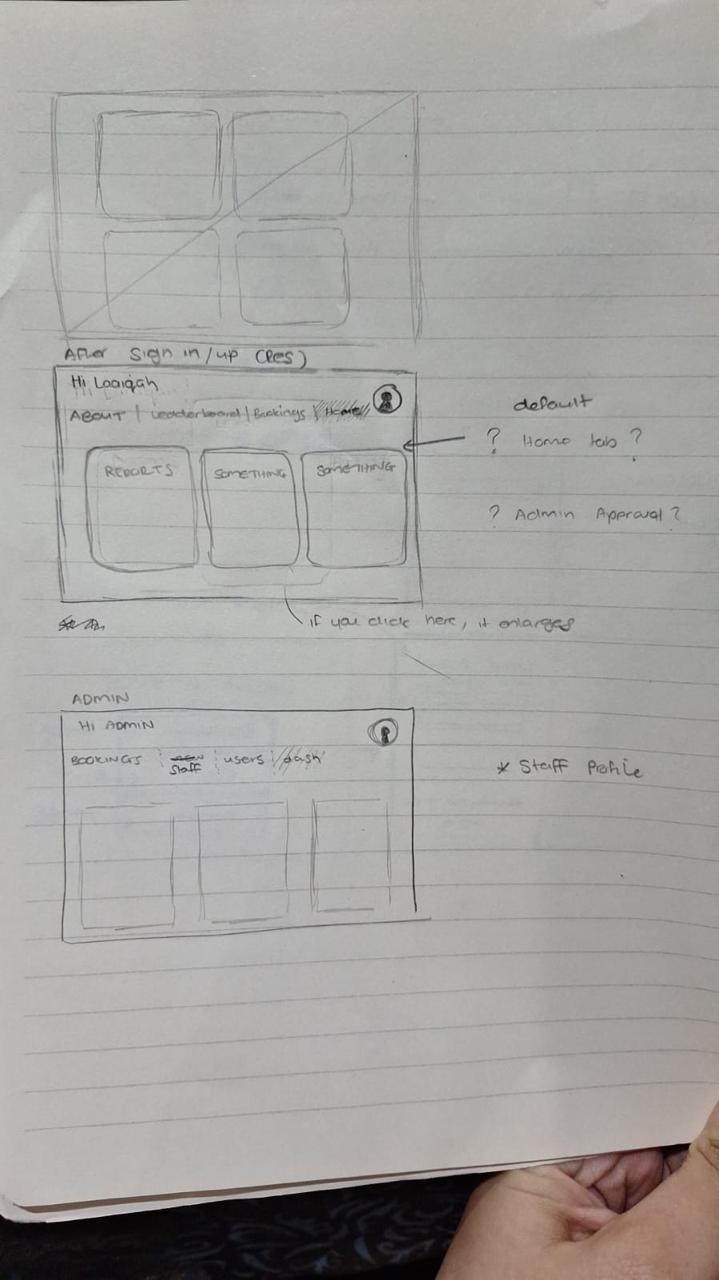 After Sign in/up (Res)
Hi Laaiqah
ABOUT | Leaderboard | Bookings | Home
default
? Home tab ?
REPORTS
SOMETHING
SOMETHING
? Admin Approval ?
if you click here, it enlarges
ADMIN
HI ADMIN
BOOKINGS
Staff
users
dash
* Staff Profile